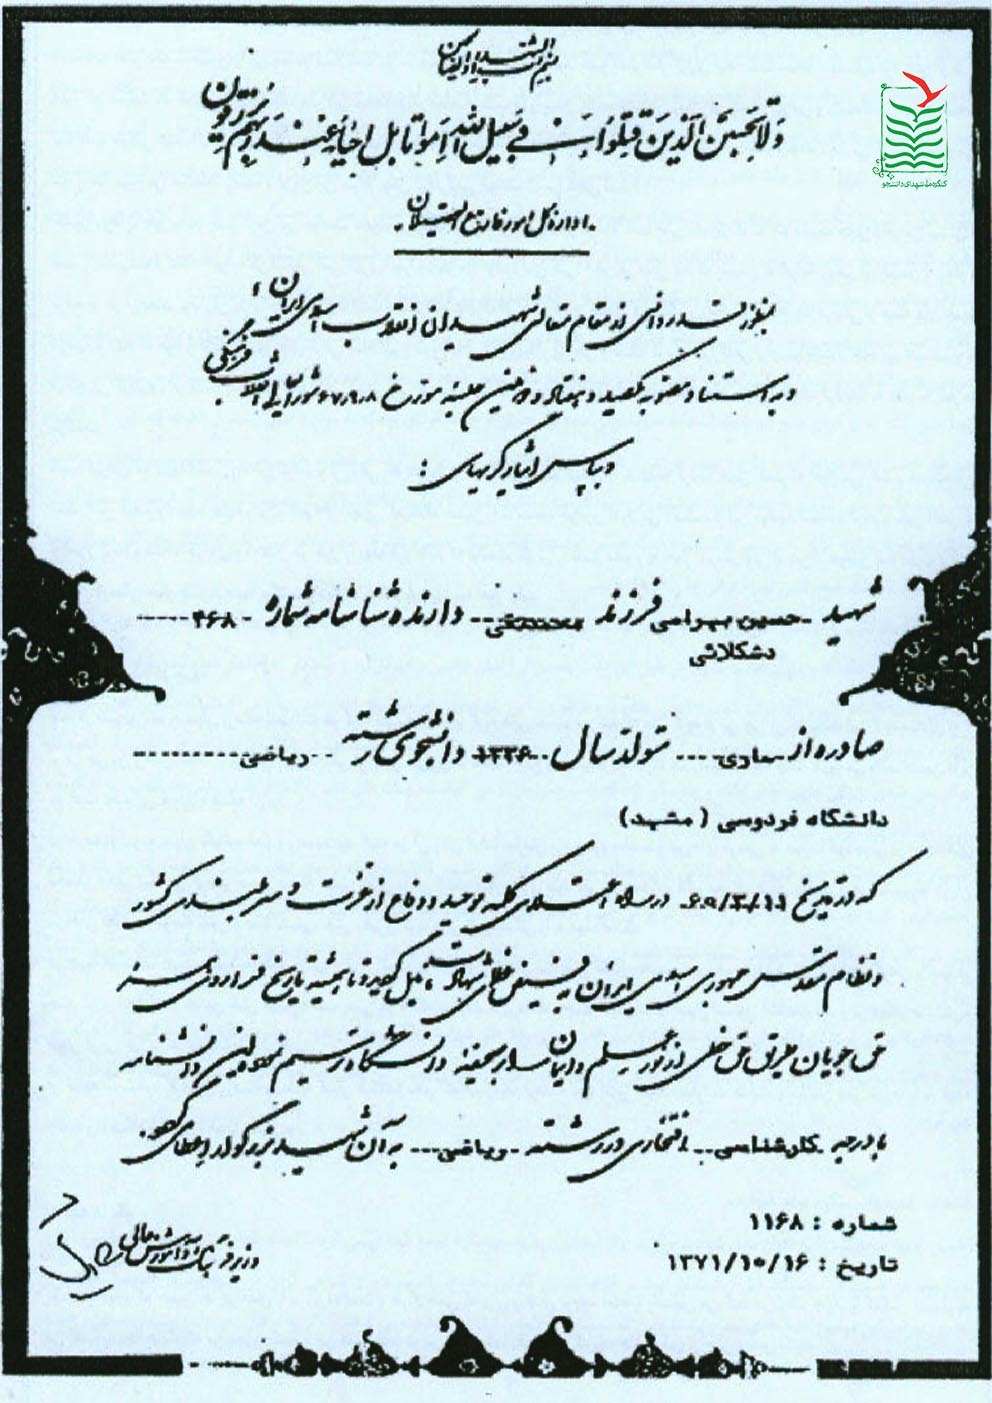 بسم رب الشهداء و الصدیقین
ولا تحسبن الذین قتلوا فی سبیل الله امواتا بل احیاء عند ربهم یرزقون
کنگره ملی شهدای دانشجو
اداره کل امور فارغ التحصیلان
بمنظور قدردانی از مقام متعالی شهیدان انقلاب اسلامی ایران ؛
و به استناد مصوبه یکصد و هفتاد و جلسه مورخ ۶۷/۹/۸ شورایعالی انقلاب فرهنگی
و بپاس ایثارگریهای :
شهید حسین بهرامی فرزند دارنده شناسنامه شماره ۴۶۸
دشکلائی
صادره از ساری متولد سال ۱۳۳۶ دانشجوی رشته ریاضی
دانشگاه فردوسی ( مشهد)
که در تاریخ در راه اعتلای کلمه توحید و دفاع از عزت و سربلندی کشور
و نظام مقدس جمهوری اسلامی ایران به فیض عظمای شهادت نایل گردید و تا همیشه تاریخ فرا روی همه
حق جویان طریق حق خطی از نور علم و ایمان بر صحیفه دانشگاه ترسیم نمود این دانشنامه
با درجه کارشناسی افتخاری در رشته ریاضی به آن شهید بزرگوار اعطا می گردد.
شماره : ۱۱۶۸
تاریخ : ۱۳۷۱/۱۰/۱۶
وزیر فرهنگ و آموزش عالی